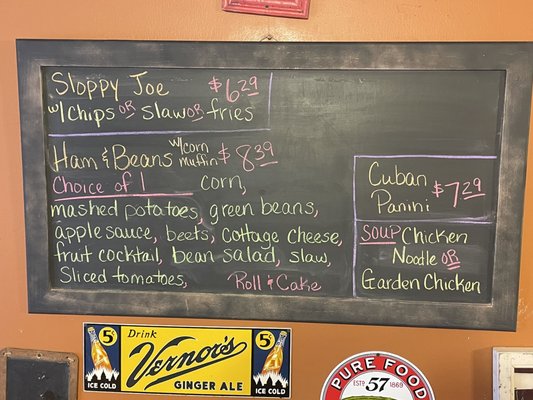 Sloppy Joe $6.29
w/chips OR slaw OR fries
Ham & Beans w/corn muffin $8.39
Choice of 1 corn,
mashed potatoes, green beans,
applesauce, beets, cottage cheese,
fruit cocktail, bean salad, slaw,
Sliced tomatoes, Roll & Cake
Cuban Panini $7.29
SOUP Chicken
Noodle OR
Garden Chicken
5¢ DRINK 5¢
Vernor's
GINGER ALE
ICE COLD
ICE COLD
PURE FOOD
ESTD 57 1869